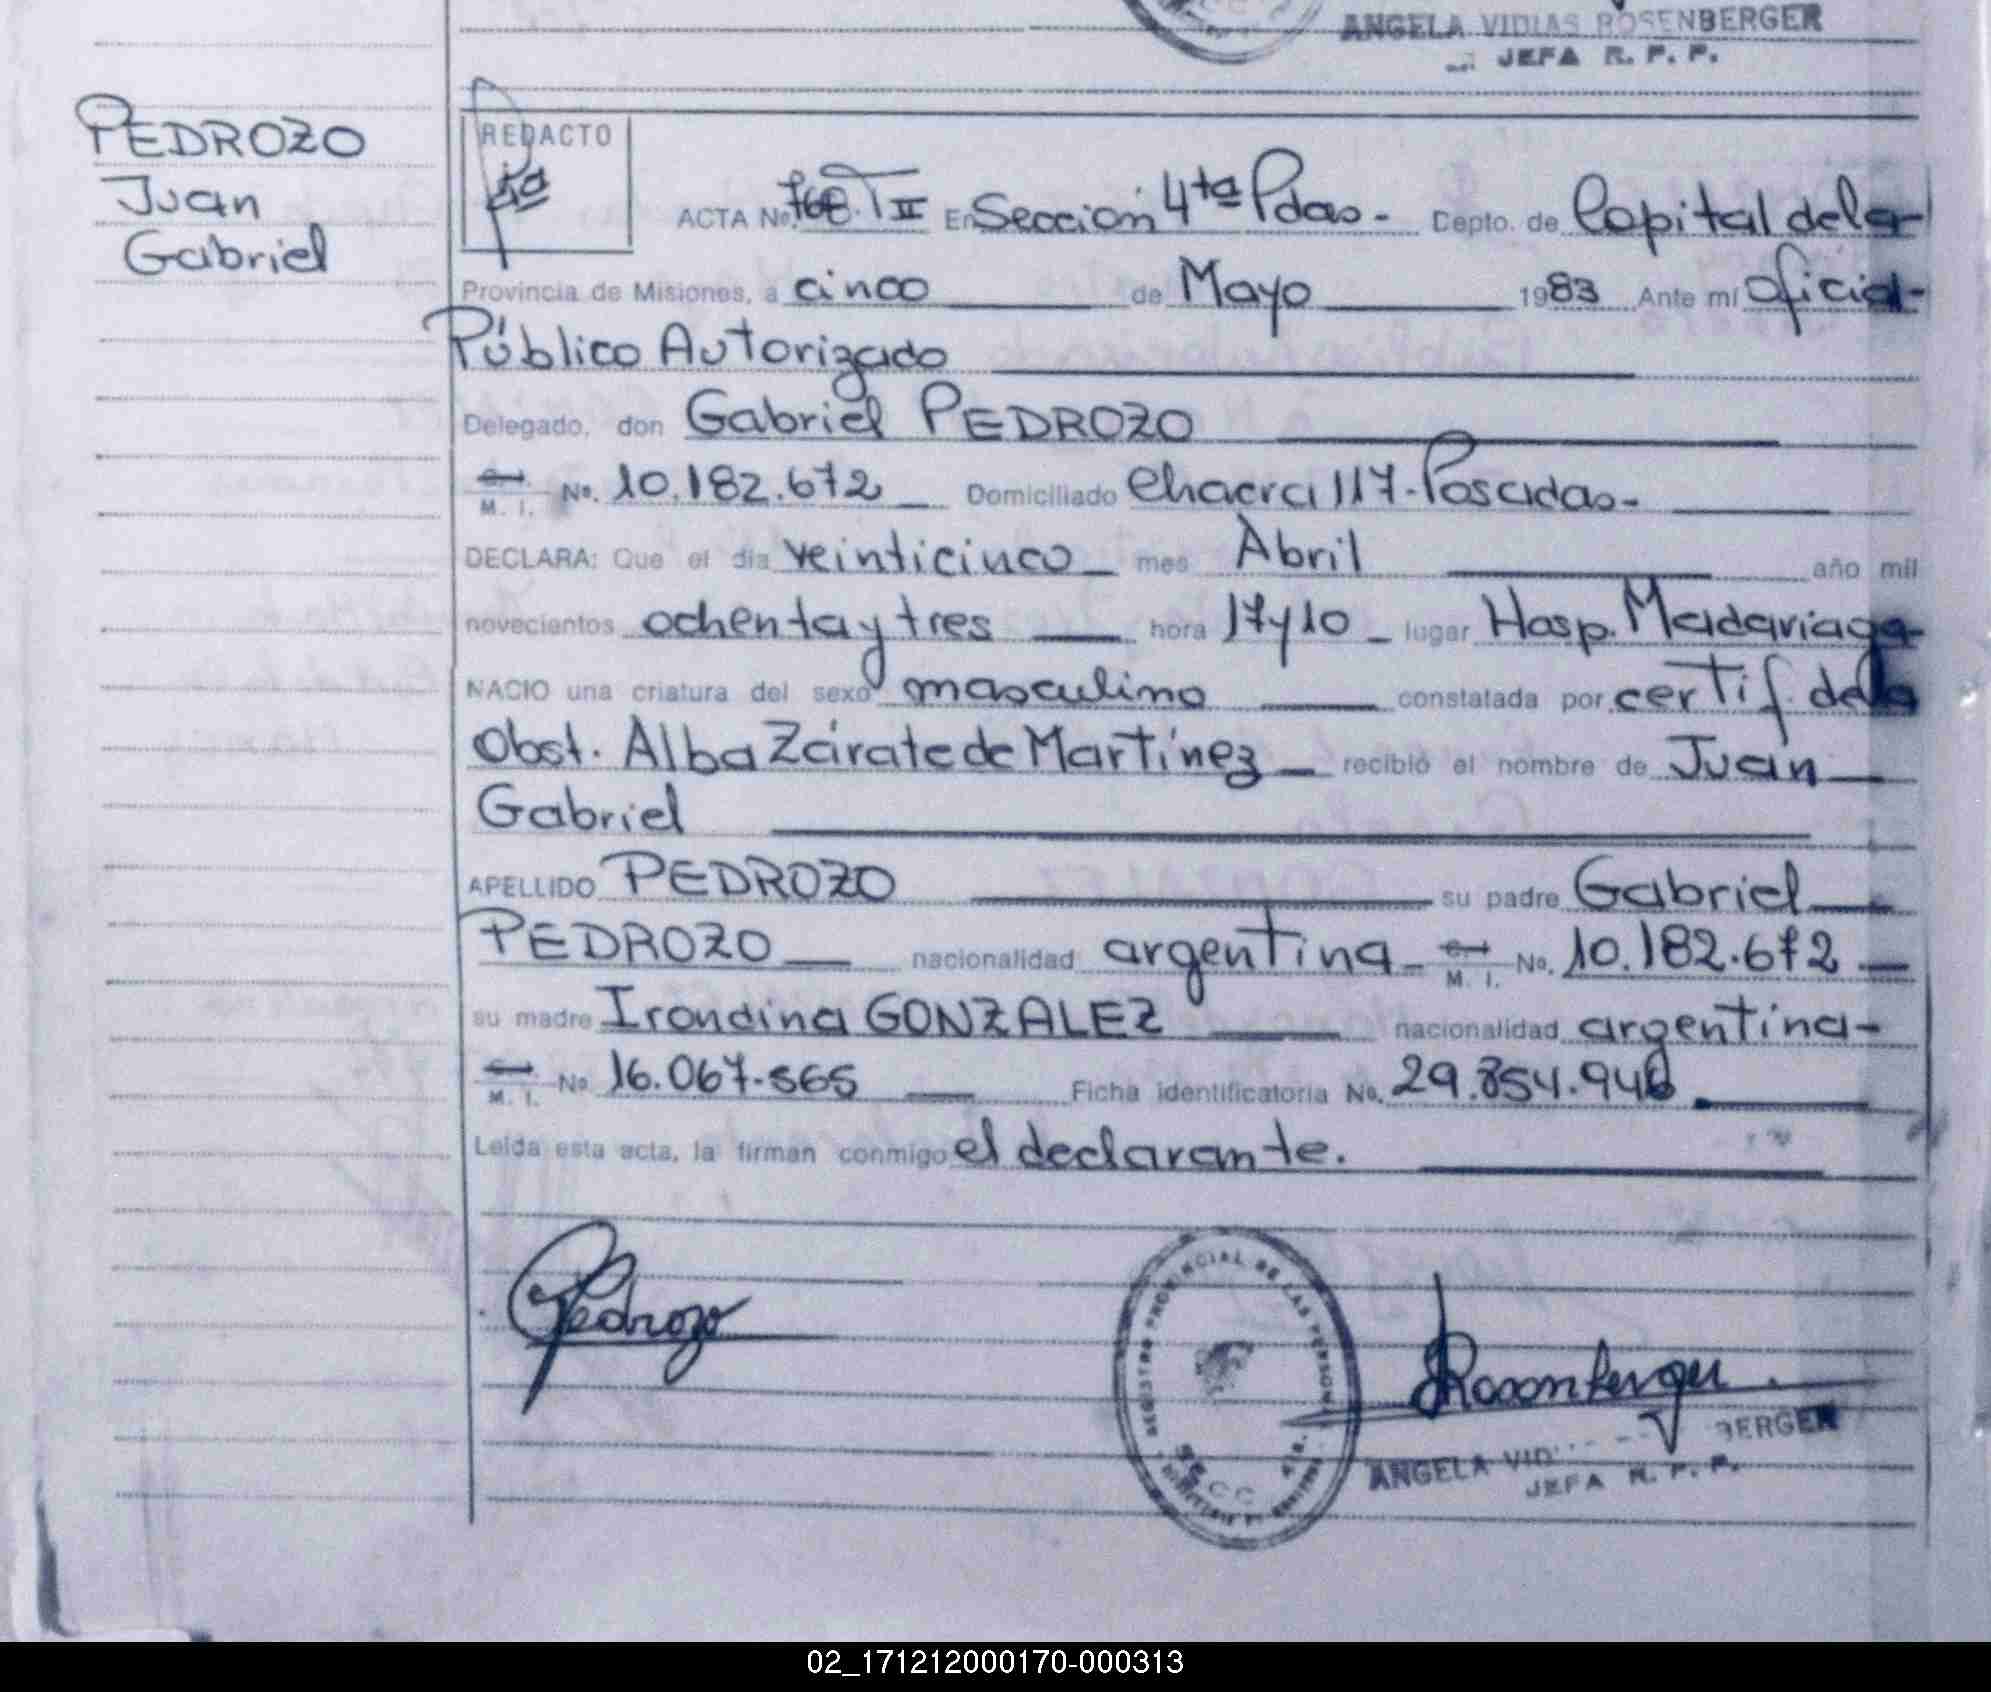 ANGELA VIDIAS ROSENBERGER
JEFA R. P. P.
PEDROZO
Juan
Gabriel
REDACTO
ACTA No. 768. T II En Sección 4ta Pdas- Depto. de Capital de la
Provincia de Misiones, a cinco de Mayo 1983 Ante mí oficial-
Público Autorizado
Delegado, don Gabriel PEDROZO
C. I. M. I. No. 10.182.672 Domiciliado Chacra 117-Posadas-
DECLARA: Que el día veinticinco mes Abril año mil
novecientos ochenta y tres hora 17 y 10 lugar Hosp. Madariaga-
NACIO una criatura del sexo masculino constatada por certif. de la
Obst. Alba Zárate de Martínez recibió el nombre de Juan
Gabriel
APELLIDO PEDROZO su padre Gabriel
PEDROZO nacionalidad argentina C. I. M. I. No. 10.182.672
su madre Irondina GONZALEZ nacionalidad argentina-
C. I. M. I. No 16.067.565 Ficha identificatoria No. 29.854.946
Leída esta acta, la firman conmigo el declarante.
Pedrozo
REGISTRO PROVINCIAL DE LAS PERSONAS
Rosemberger
ANGELA VID BERGER
JEFA R. P. P.
02_171212000170-000313